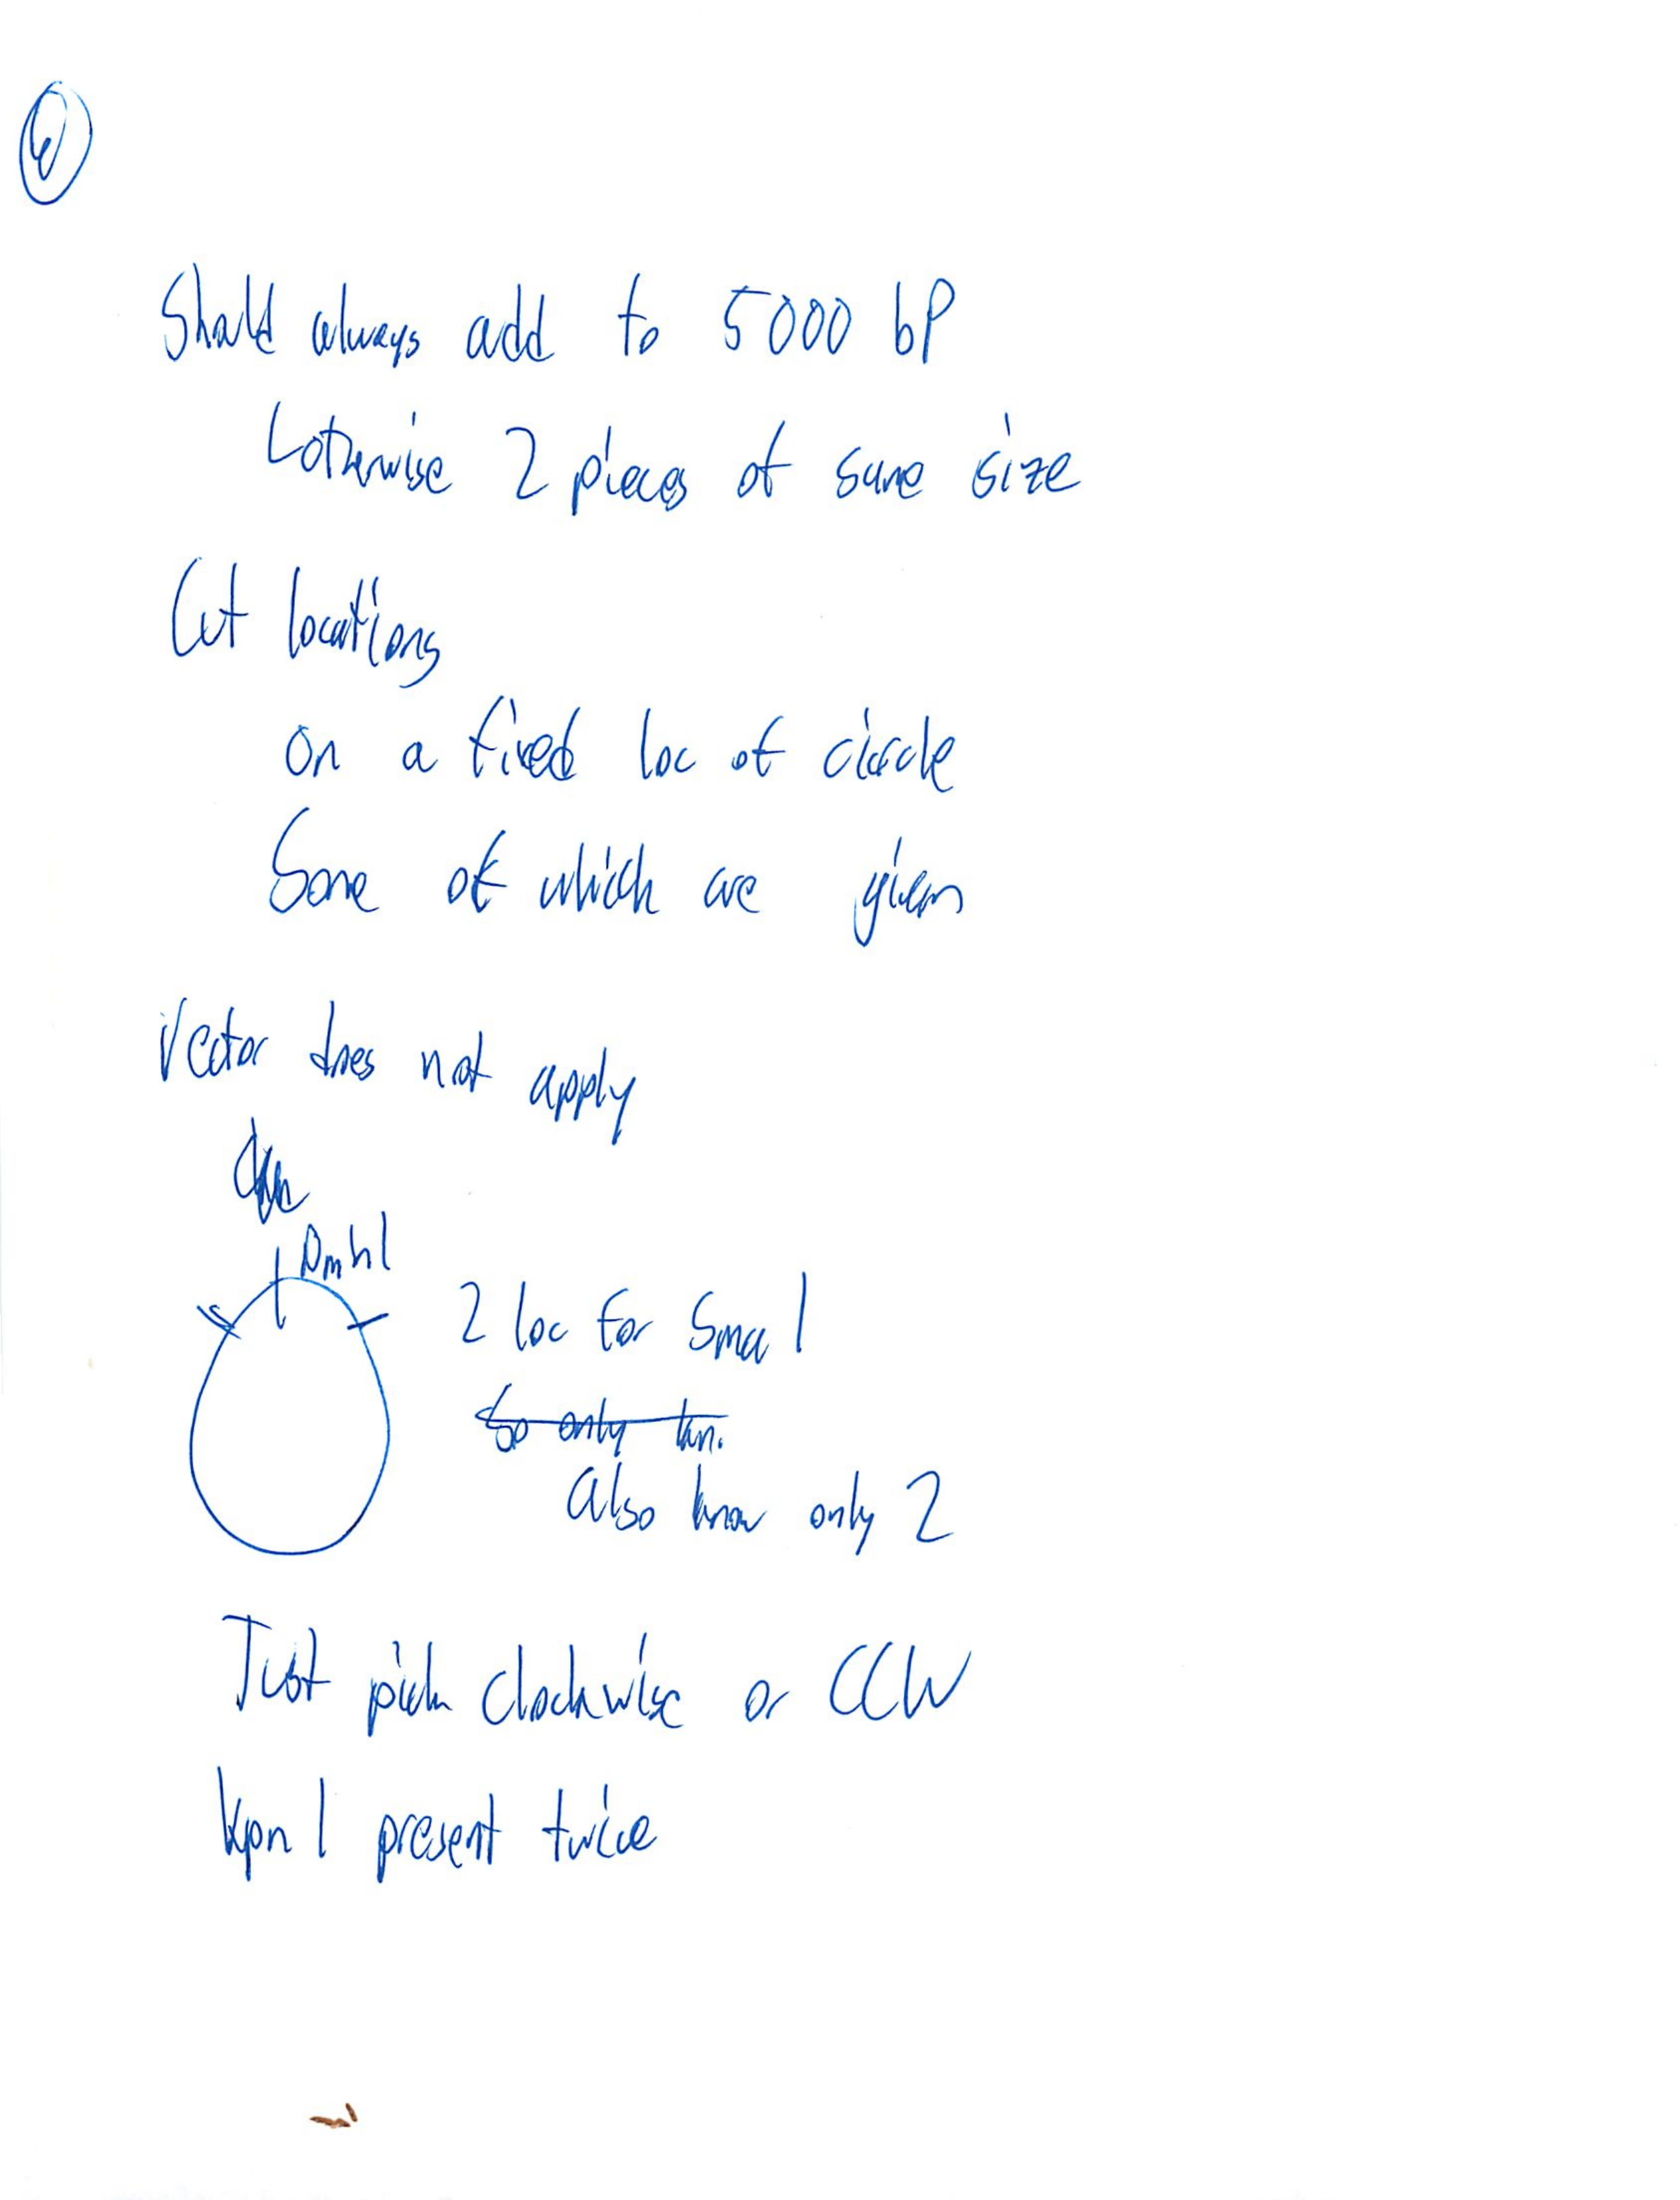 Should always add to 5000 bp
otherwise 2 pieces of same size
Cut locations
on a fixed loc of circle
Some of which are given
Vector does not apply
2 loc for Sma 1
So only
also know only 2
Just pick clockwise or CCW
Kpn 1 present twice